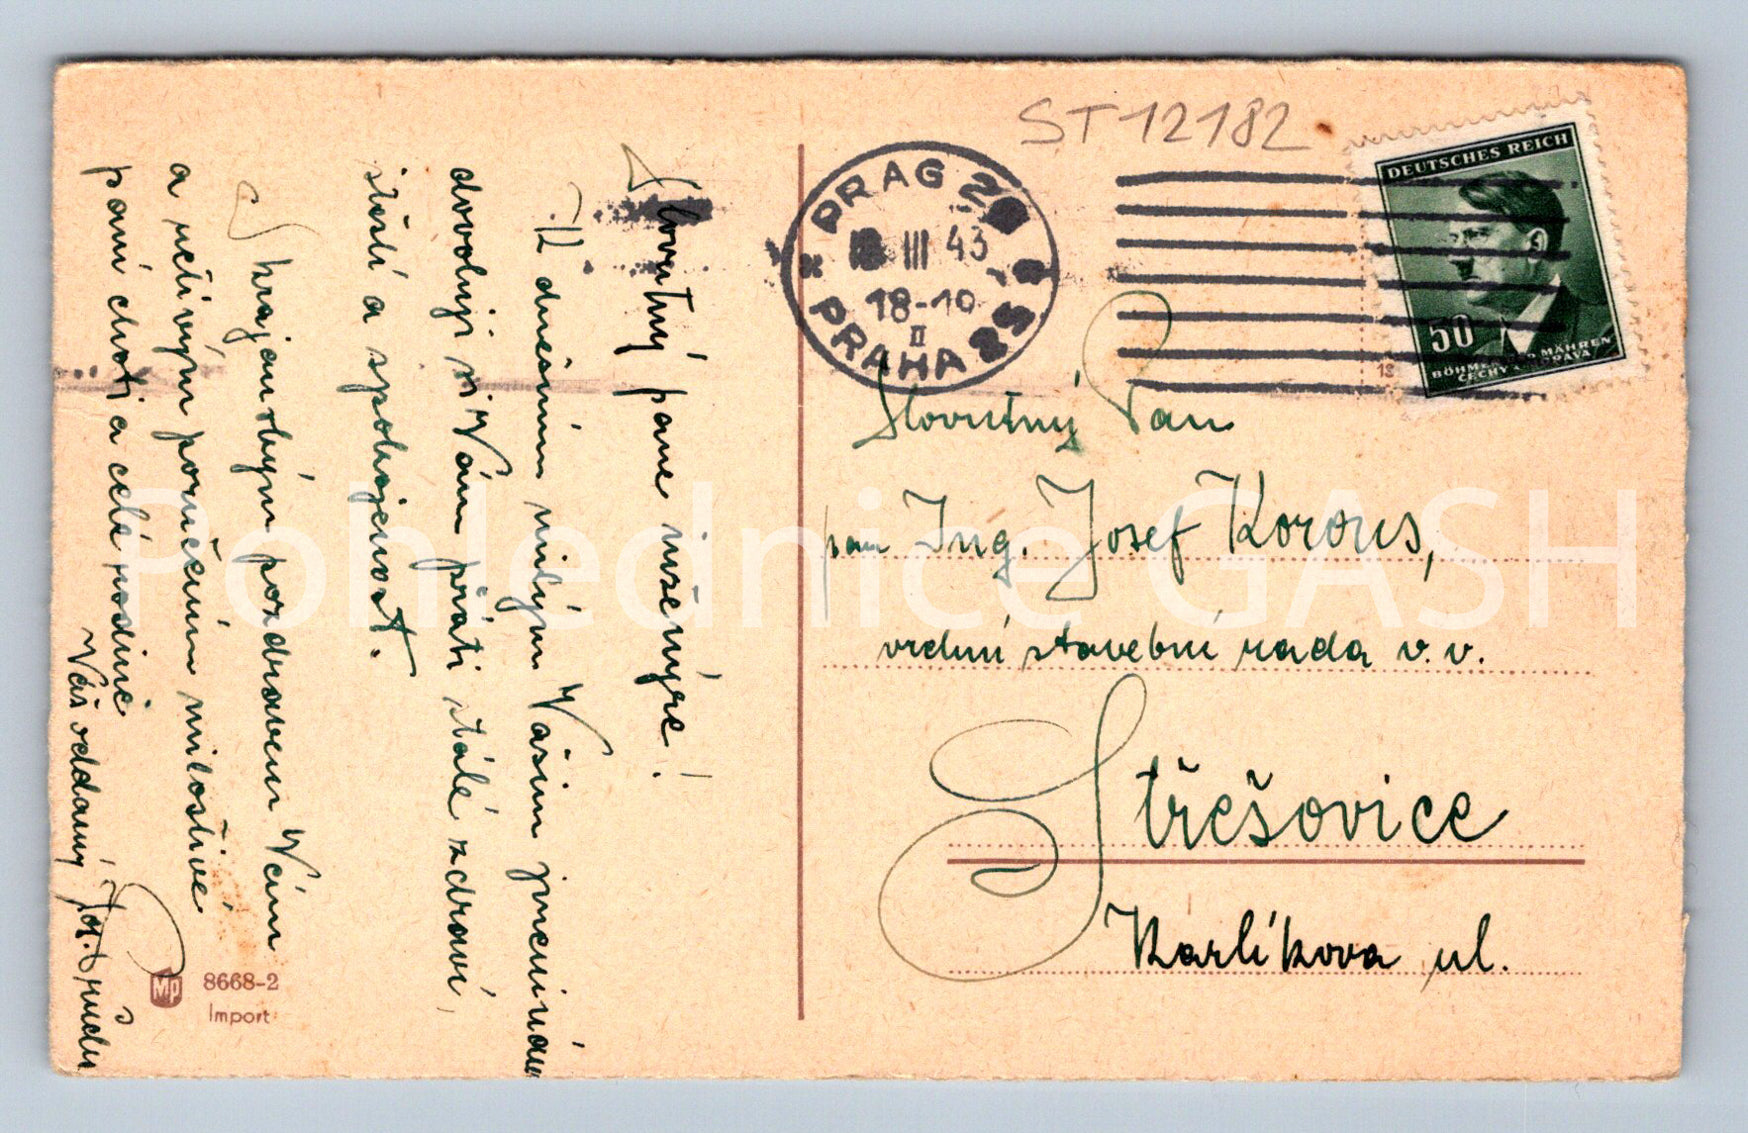 ST12182
PRAG 25
III 43
18-10
II
PRAHA 25
DEUTSCHES REICH
50
BÖHMEN UND MÄHREN
ČECHY A MORAVA
Slovutný Pan
pan Ing. Josef Korous,
vrchní stavební rada v. v.
Střešovice
Karlíkova ul.
Slovutný pane inženýre!
K dnešním milým Vašim jmeninám
dovoluji si Vám přáti stálé zdraví,
štěstí a spokojenost.
S krajanským pozdravem Vám
a uctivým poručením milostivé
paní choti a celé rodině
Váš oddaný Jos.
MP
8668-2
Import
Pohlednice GASH